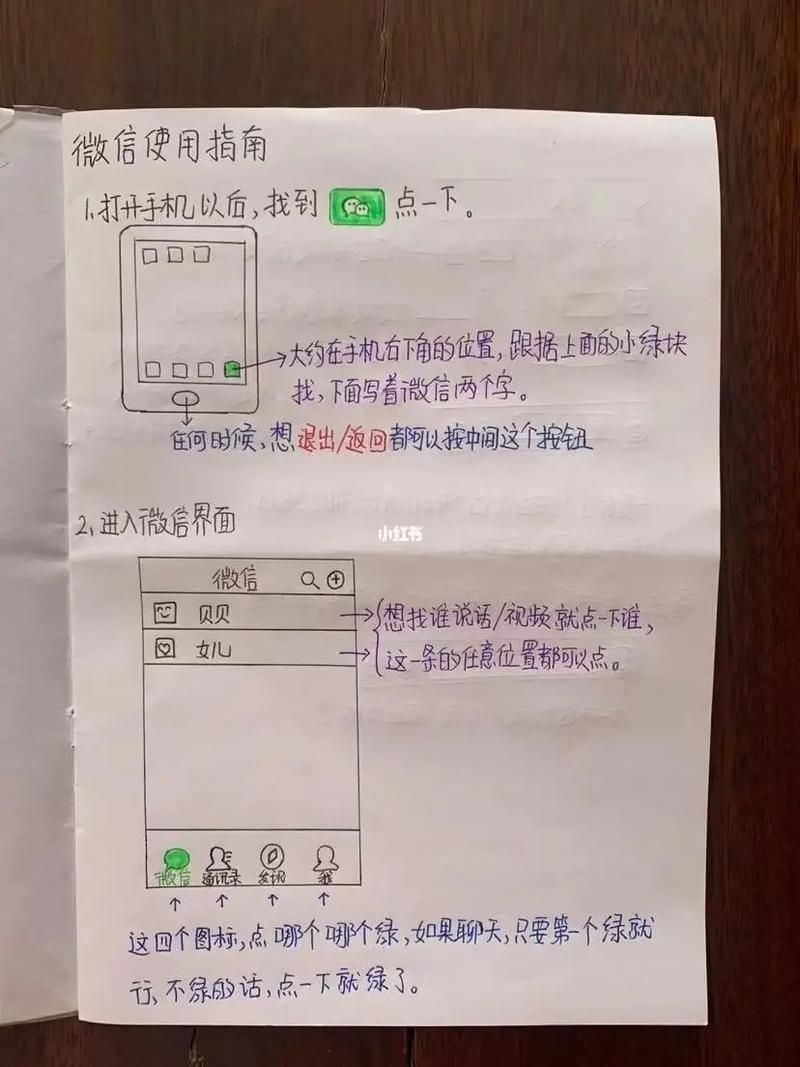 微信使用指南
1、打开手机以后，找到 点一下。
大约在手机右下角的位置，跟据上面的小绿块
找，下面写着微信两个字。
任何时候，想退出/返回都可以按中间这个按钮
2、进入微信界面
小红书
微信
贝贝
女儿
想找谁说话/视频就点一下谁，
这一条的任意位置都可以点。
微信 通讯录 发现 我
这四个图标，点哪个哪个绿，如果聊天，只要第一个绿就
行，不绿的话，点一下就绿了。